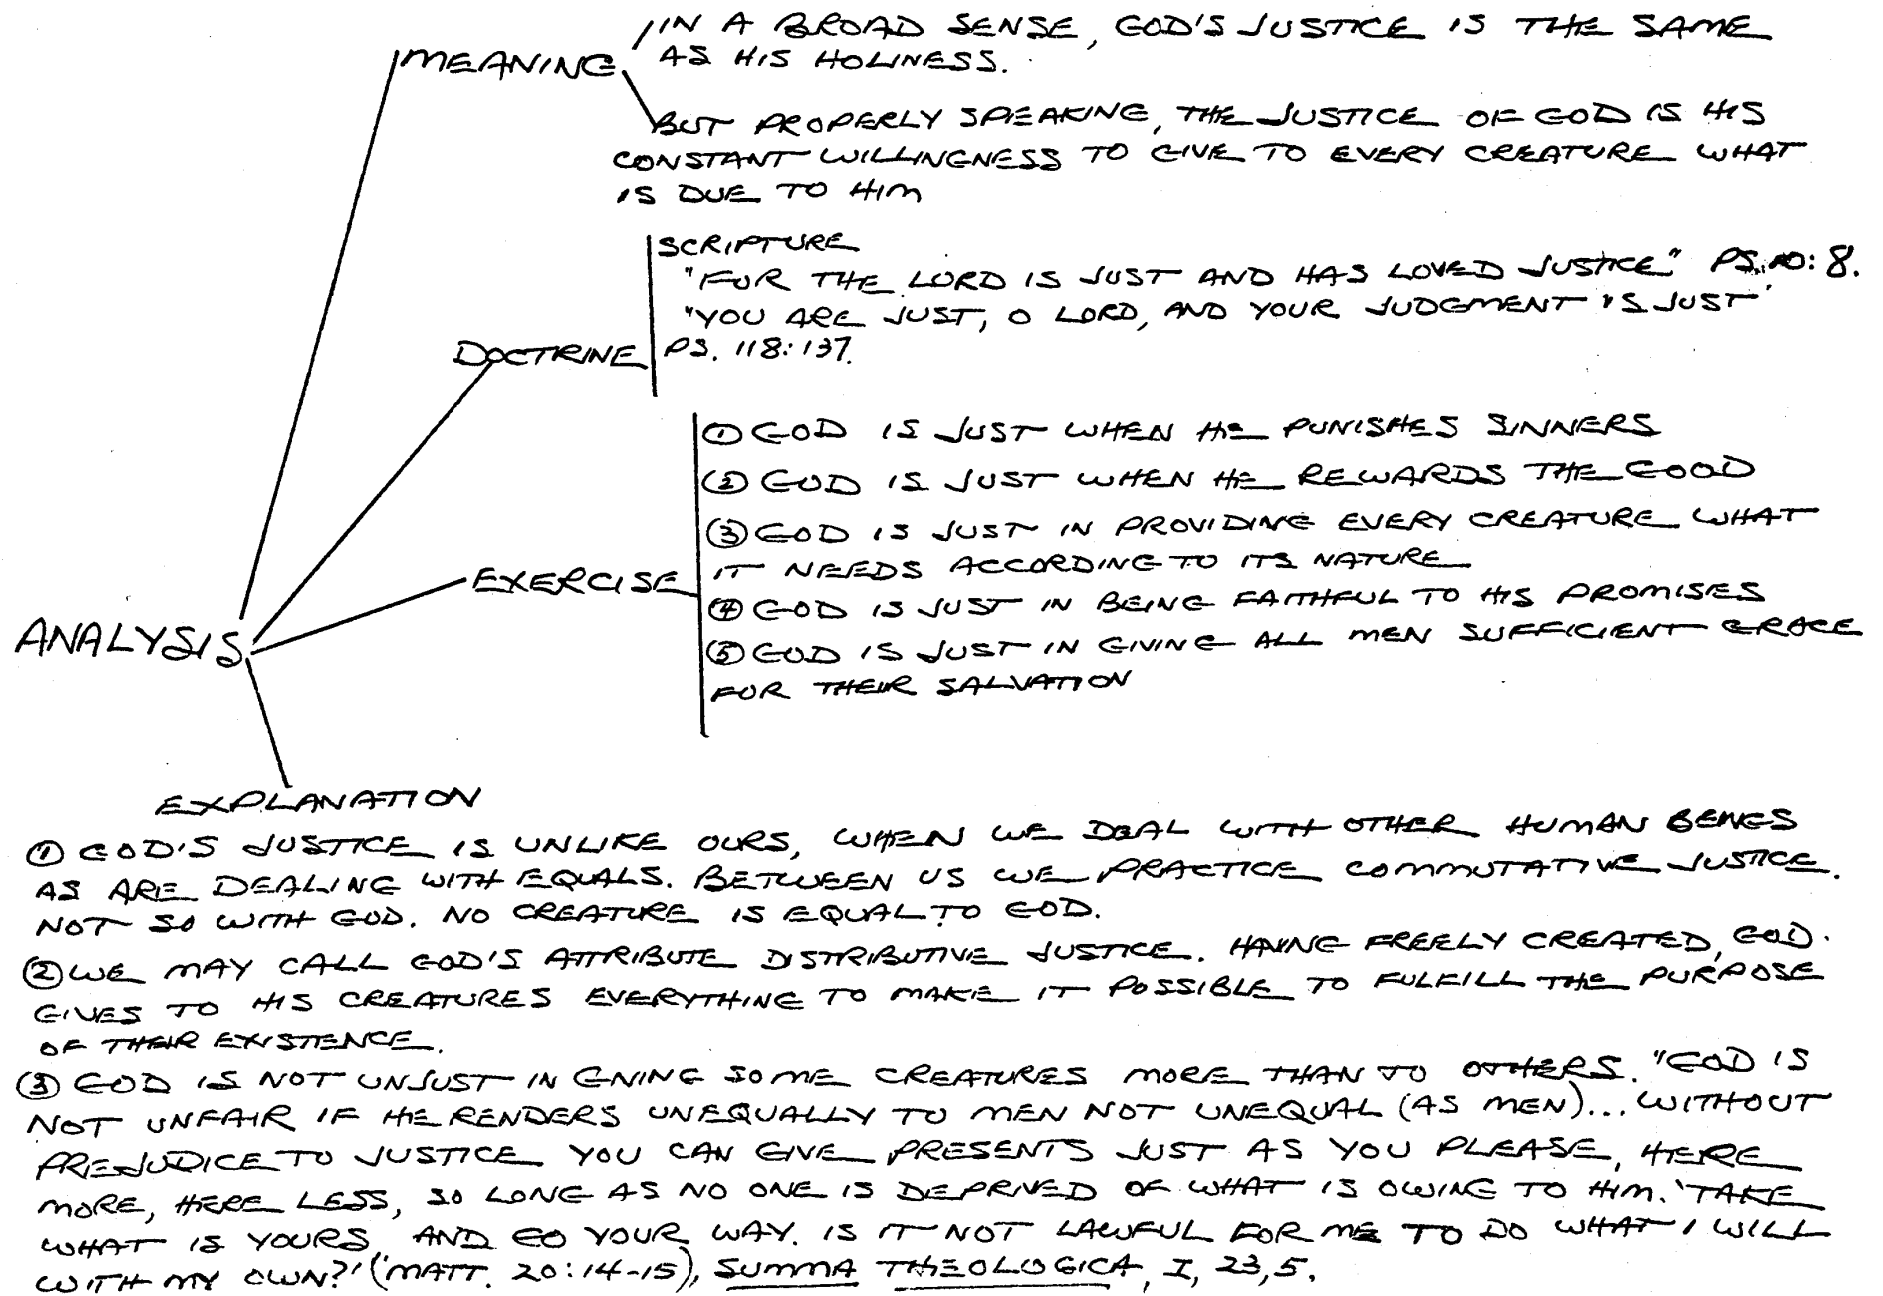 MEANING
IN A BROAD SENSE, GOD'S JUSTICE IS THE SAME
AS HIS HOLINESS.
BUT PROPERLY SPEAKING, THE JUSTICE OF GOD IS HIS
CONSTANT WILLINGNESS TO GIVE TO EVERY CREATURE WHAT
IS DUE TO HIM
DOCTRINE
SCRIPTURE
"FOR THE LORD IS JUST AND HAS LOVED JUSTICE" PS. 10:8.
"YOU ARE JUST, O LORD, AND YOUR JUDGMENT IS JUST"
PS. 118:137.
EXERCISE
① GOD IS JUST WHEN HE PUNISHES SINNERS
② GOD IS JUST WHEN HE REWARDS THE GOOD
③ GOD IS JUST IN PROVIDING EVERY CREATURE WHAT
IT NEEDS ACCORDING TO ITS NATURE
④ GOD IS JUST IN BEING FAITHFUL TO HIS PROMISES
⑤ GOD IS JUST IN GIVING ALL MEN SUFFICIENT GRACE
FOR THEIR SALVATION
ANALYSIS
EXPLANATION
① GOD'S JUSTICE IS UNLIKE OURS, WHEN WE DEAL WITH OTHER HUMAN BEINGS
AS ARE DEALING WITH EQUALS. BETWEEN US WE PRACTICE COMMUTATIVE JUSTICE.
NOT SO WITH GOD. NO CREATURE IS EQUAL TO GOD.
② WE MAY CALL GOD'S ATTRIBUTE DISTRIBUTIVE JUSTICE. HAVING FREELY CREATED, GOD
GIVES TO HIS CREATURES EVERYTHING TO MAKE IT POSSIBLE TO FULFILL THE PURPOSE
OF THEIR EXISTENCE.
③ GOD IS NOT UNJUST IN GIVING SOME CREATURES MORE THAN TO OTHERS. "GOD IS
NOT UNFAIR IF HE RENDERS UNEQUALLY TO MEN NOT UNEQUAL (AS MEN)... WITHOUT
PREJUDICE TO JUSTICE YOU CAN GIVE PRESENTS JUST AS YOU PLEASE, HERE
MORE, HERE LESS, SO LONG AS NO ONE IS DEPRIVED OF WHAT IS OWING TO HIM. 'TAKE
WHAT IS YOURS AND GO YOUR WAY. IS IT NOT LAWFUL FOR ME TO DO WHAT I WILL
WITH MY OWN?' (MATT. 20:14-15), SUMMA THEOLOGICA, I, 23, 5.